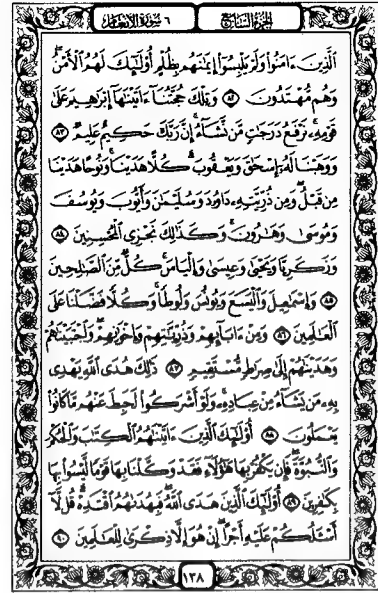 الجزء السابع
٦ سورة الأنعام
ٱلَّذِينَ ءَامَنُوا۟ وَلَمْ يَلْبِسُوٓا۟ إِيمَٰنَهُم بِظُلْمٍ أُو۟لَٰٓئِكَ لَهُمُ ٱلْأَمْنُ
وَهُم مُّهْتَدُونَ ٨٢ وَتِلْكَ حُجَّتُنَآ ءَاتَيْنَٰهَآ إِبْرَٰهِيمَ عَلَىٰ
قَوْمِهِۦ ۚ نَرْفَعُ دَرَجَٰتٍ مَّن نَّشَآءُ ۗ إِنَّ رَبَّكَ حَكِيمٌ عَلِيمٌ ٨٣
وَوَهَبْنَا لَهُۥٓ إِسْحَٰقَ وَيَعْقُوبَ ۚ كُلًّا هَدَيْنَا ۚ وَنُوحًا هَدَيْنَا
مِن قَبْلُ ۖ وَمِن ذُرِّيَّتِهِۦ دَاوُۥدَ وَسُلَيْمَٰنَ وَأَيُّوبَ وَيُوسُفَ
وَمُوسَىٰ وَهَٰرُونَ ۚ وَكَذَٰلِكَ نَجْزِى ٱلْمُحْسِنِينَ ٨٤
وَزَكَرِيَّا وَيَحْيَىٰ وَعِيسَىٰ وَإِلْيَاسَ ۖ كُلٌّ مِّنَ ٱلصَّٰلِحِينَ
٨٥ وَإِسْمَٰعِيلَ وَٱلْيَسَعَ وَيُونُسَ وَلُوطًا ۚ وَكُلًّا فَضَّلْنَا عَلَى
ٱلْعَٰلَمِينَ ٨٦ وَمِنْ ءَابَآئِهِمْ وَذُرِّيَّٰتِهِمْ وَإِخْوَٰنِهِمْ ۖ وَٱجْتَبَيْنَٰهُمْ
وَهَدَيْنَٰهُمْ إِلَىٰ صِرَٰطٍ مُّسْتَقِيمٍ ٨٧ ذَٰلِكَ هُدَى ٱللَّهِ يَهْدِى
بِهِۦ مَن يَشَآءُ مِنْ عِبَادِهِۦ ۚ وَلَوْ أَشْرَكُوا۟ لَحَبِطَ عَنْهُم مَّا كَانُوا۟
يَعْمَلُونَ ٨٨ أُو۟لَٰٓئِكَ ٱلَّذِينَ ءَاتَيْنَٰهُمُ ٱلْكِتَٰبَ وَٱلْحُكْمَ
وَٱلنُّبُوَّةَ ۚ فَإِن يَكْفُرْ بِهَا هَٰٓؤُلَآءِ فَقَدْ وَكَّلْنَا بِهَا قَوْمًا لَّيْسُوا۟ بِهَا
بِكَٰفِرِينَ ٨٩ أُو۟لَٰٓئِكَ ٱلَّذِينَ هَدَى ٱللَّهُ ۖ فَبِهُدَىٰهُمُ ٱقْتَدِهْ ۗ قُل لَّآ
أَسْـَٔلُكُمْ عَلَيْهِ أَجْرًا ۖ إِنْ هُوَ إِلَّا ذِكْرَىٰ لِلْعَٰلَمِينَ ٩٠
١٣٨